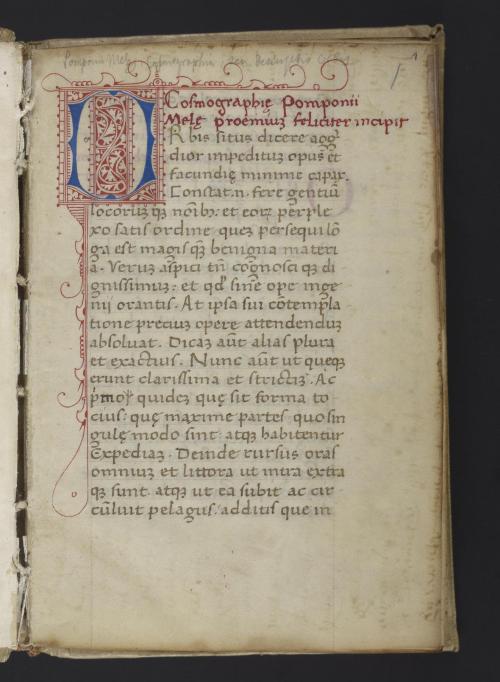 Pomponii Mele Cosmographia
1
Cosmographię Pomponii
Melę proemiuʒ feliciter incipit
ORbis situs dicere agg̃
dior impedituʒ opus et
facundię minime capax.
Constat.n. fere gentiũ
locoruʒ qʒ noĩbʒ: et eoꝝ perple
xo satis ordine queʒ persequi lõ
ga est magis qʒ benigna materi
a. Veruʒ aspici tñ cognosci qʒ di
gnissimuʒ: et qđ sine ope inge
nii orantis. At ipsa sui cõtempla
tione preciuʒ opere attendenduʒ
absoluat. Dicaʒ aũt alias plura
et exactius. Nunc aũt ut queqʒ
erunt clarissima et strictiʒ. Ac
p̃moʒ quideʒ quę sit forma to
cius: quę maxime partes quo sin
gulę modo sint: atqʒ habitentur
Expediaʒ. Deinde rursus oras
omniuʒ et littora ut intra extra
qʒ sunt. atqʒ ut ea subit ac cir
cũluit pelagus. additis que in